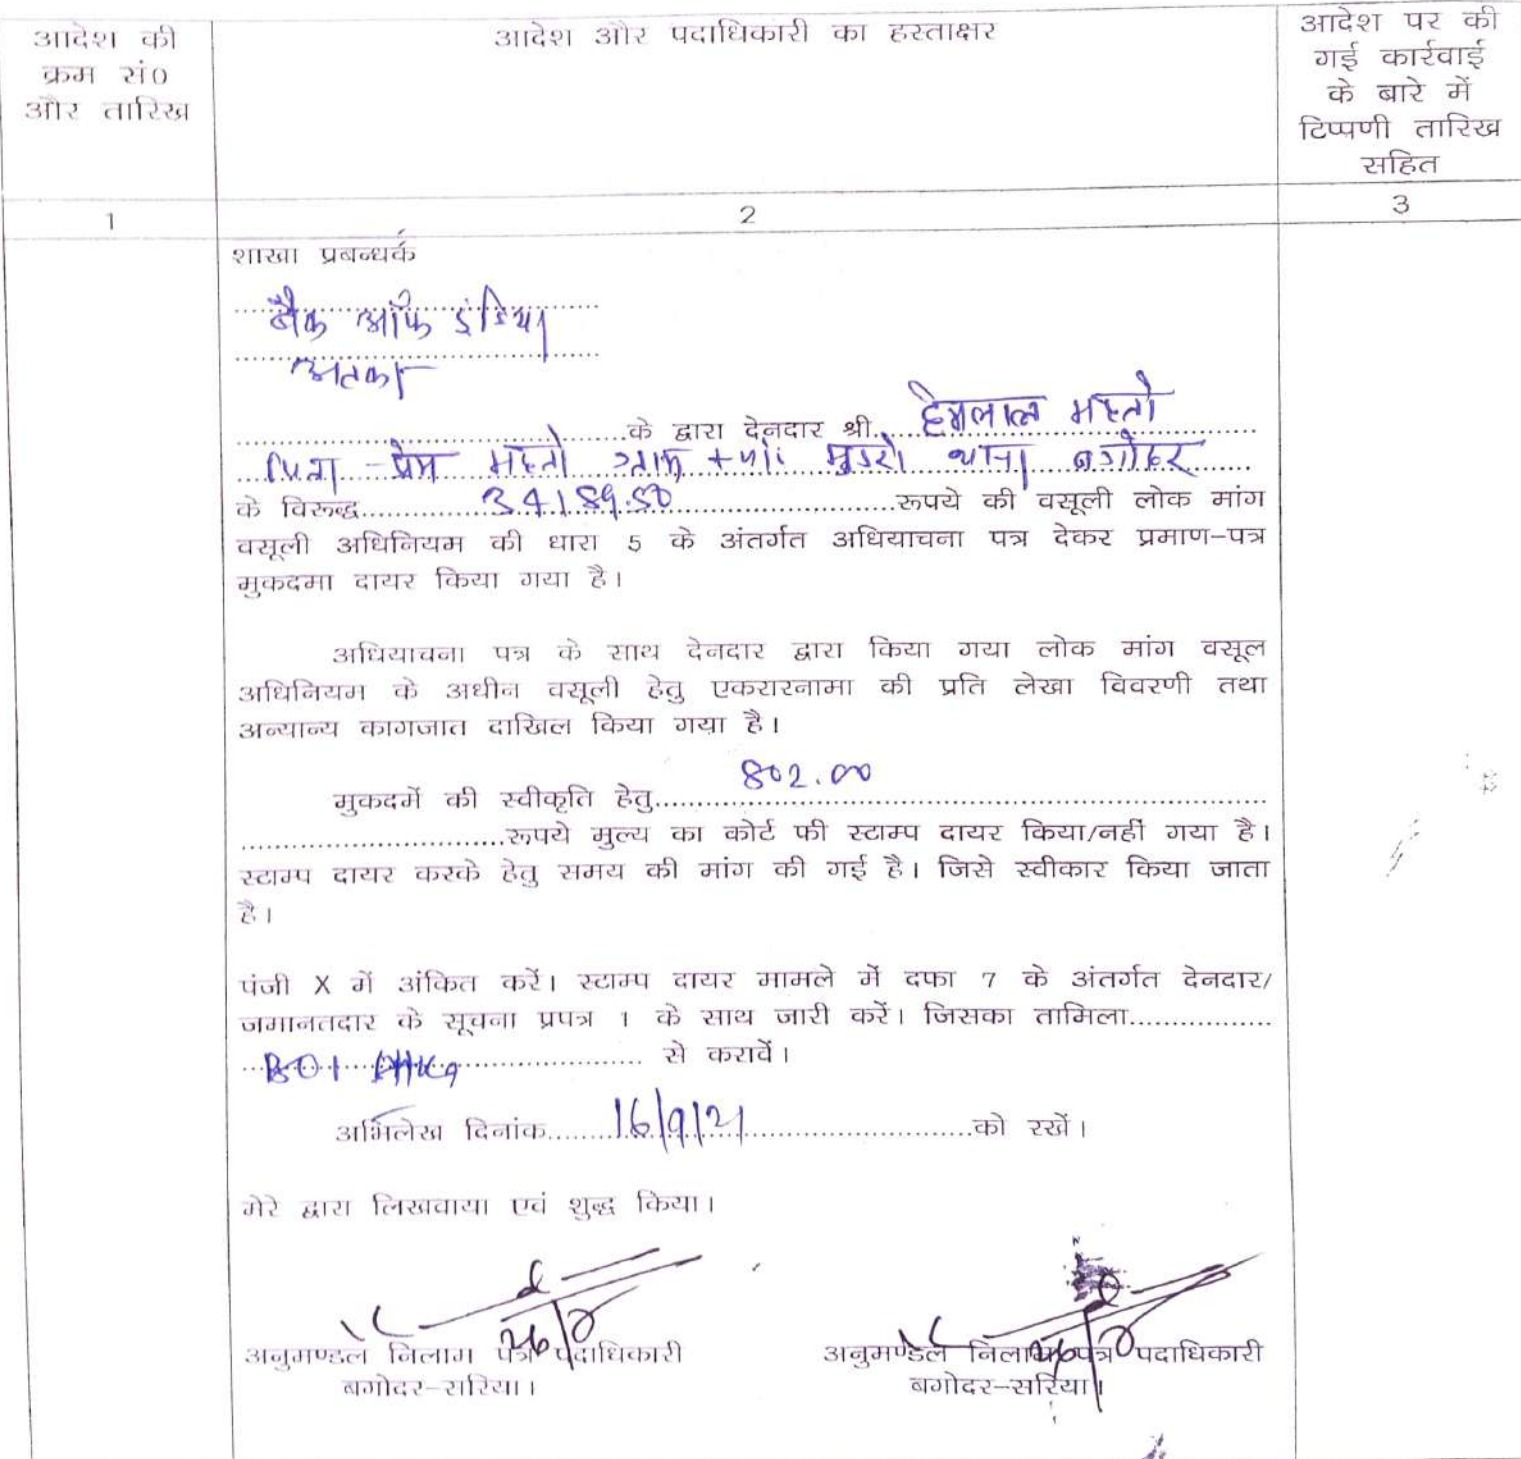 आदेश की
क्रम सं0
और तारिख
आदेश और पदाधिकारी का हस्ताक्षर
आदेश पर की
गई कार्रवाई
के बारे में
टिप्पणी तारिख
सहित
1
2
3
शाखा प्रबन्धक
बैंक ऑफ इंडिया
अतका
के द्वारा देनदार श्री हेमलाल महतो
पिता - प्रेम महतो ग्राम + पो. थाना बगोदर
के विरूद्ध 34189.50 रूपये की वसूली लोक मांग
वसूली अधिनियम की धारा 5 के अंतर्गत अधियाचना पत्र देकर प्रमाण-पत्र
मुकदमा दायर किया गया है।
अधियाचना पत्र के साथ देनदार द्वारा किया गया लोक मांग वसूल
अधिनियम के अधीन वसूली हेतु एकरारनामा की प्रति लेखा विवरणी तथा
अन्यान्य कागजात दाखिल किया गया है।
मुकदमें की स्वीकृति हेतु 802.00
रूपये मुल्य का कोर्ट फी स्टाम्प दायर किया/नहीं गया है।
स्टाम्प दायर करके हेतु समय की मांग की गई है। जिसे स्वीकार किया जाता
है।
पंजी X में अंकित करें। स्टाम्प दायर मामले में दफा 7 के अंतर्गत देनदार/
जमानतदार के सूचना प्रपत्र 1 के साथ जारी करें। जिसका तामिला
BOI से करावें।
अभिलेख दिनांक 16/9/21 को रखें।
मेरे द्वारा लिखवाया एवं शुद्ध किया।
26/8 26/8
अनुमण्डल निलाम पत्र पदाधिकारी अनुमण्डल निलाम पत्र पदाधिकारी
बगोदर-सरिया। बगोदर-सरिया।